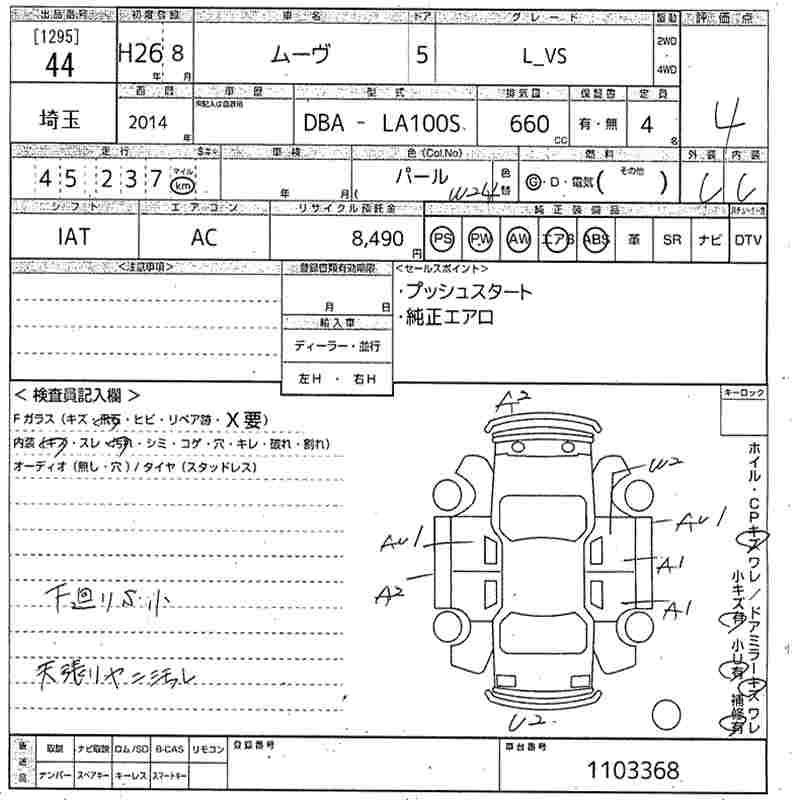 出品番号 初度登録 車名 ドア グレード 駆動 評価点
[1295]
44 H26 8 ムーヴ 5 L_VS 2WD・4WD
年 月
西暦 車歴 型式 排気量 保証書 定員
埼玉 2014 年 DBA - LA100S 660 CC 有・無 4 名 4
走行 車検 色(Col.No) 燃料 外装 内装
4 5 2 3 7 マイル km 年 月 パール W24 色替 G・D・電気( その他 ) C C
シフト エアコン リサイクル預託金 純正装備品
IAT AC 8,490 円 PS PW AW エアB ABS 革 SR ナビ DTV
<注意事項> 登録書類有効期限 <セールスポイント>
月 日 ・プッシュスタート
輸入車 ・純正エアロ
ディーラー・並行
左H ・ 右H
< 検査員記入欄 > キーロック
Fガラス(キズ・飛石・ヒビ・リペア跡・X要)
内装(キズ・スレ・汚れ・シミ・コゲ・穴・キレ・破れ・割れ)
オーディオ(無し・穴)/タイヤ(スタッドレス)
A2
W2
AU1 AU1
A1
A2 A1
下廻りS小
天張りヤニ汚れ
U2
ホイル・CPキズワレ/ドアミラーキズワレ
小キズ有 小U有 補修有
後送品 取説 ナビ取説 ロム/SD B-CAS リモコン 登録番号 車台番号
ナンバー スペアキー キーレス スマートキー 1103368